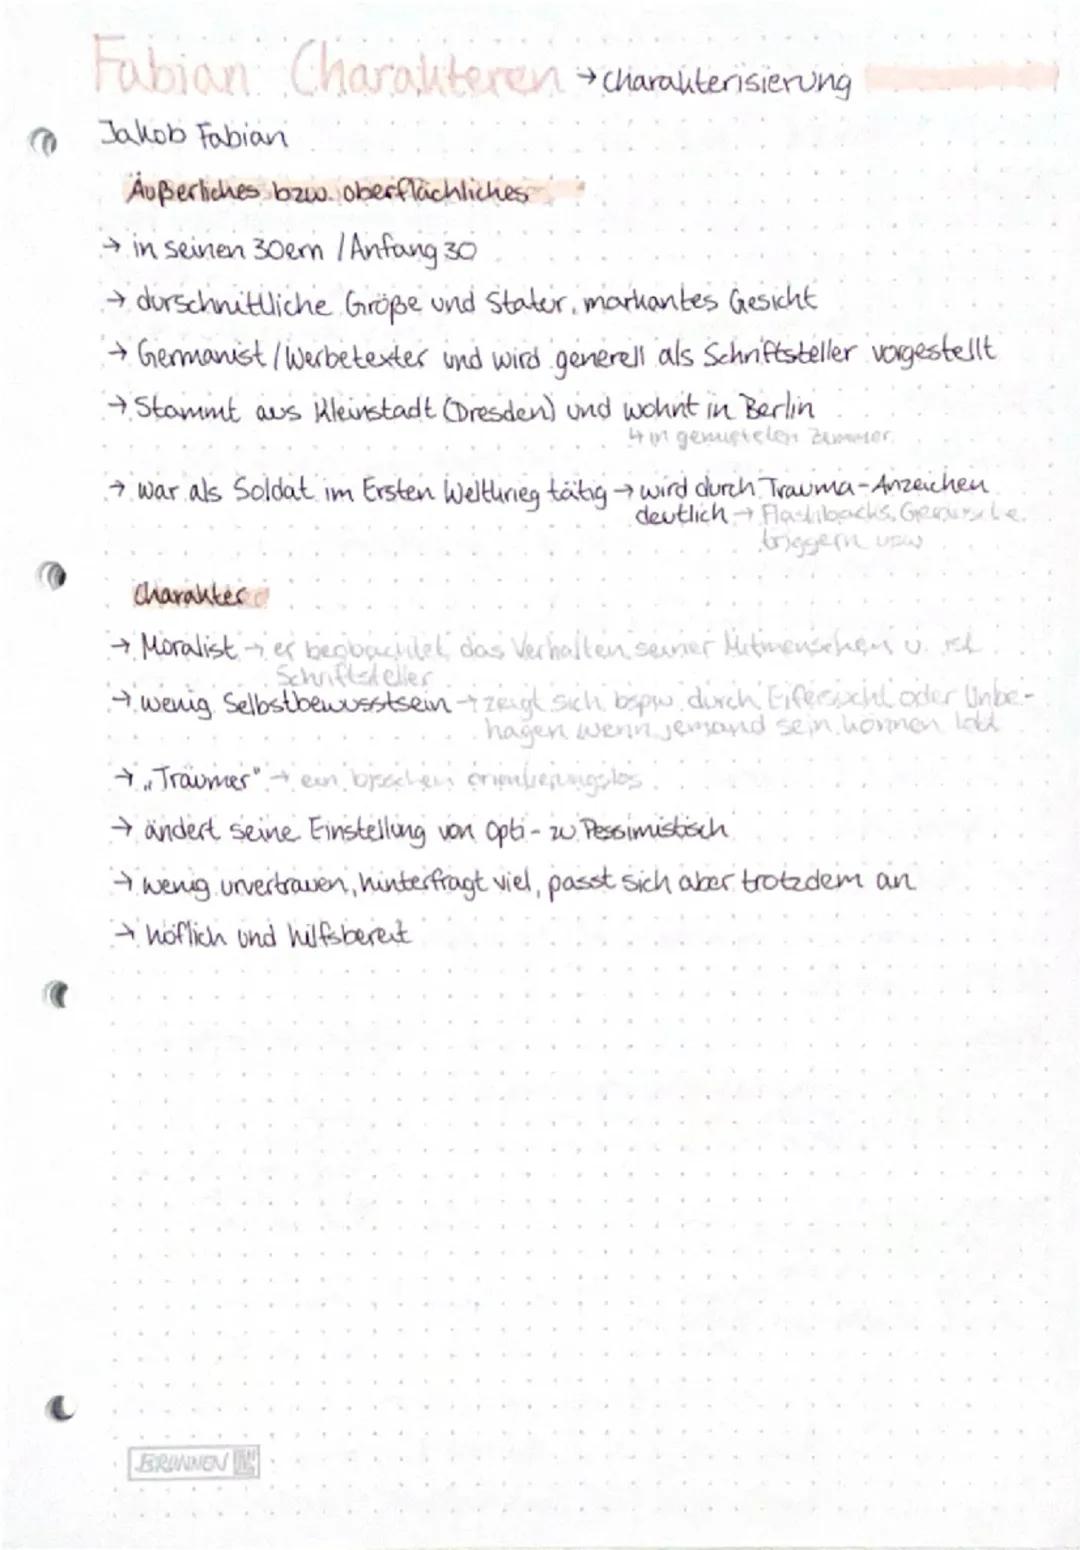 Fabian Charakteren → Charakterisierung
Jakob Fabian
Äußerliches bzw. oberflächliches
→ in seinen 30ern / Anfang 30
→ durschnittliche Größe und Statur, markantes Gesicht
→ Germanist / Werbetexter und wird generell als Schriftsteller vorgestellt
→ Stammt aus Kleinstadt (Dresden) und wohnt in Berlin
↳ in gemieteten Zimmer
→ war als Soldat im Ersten Weltkrieg tätig → wird durch Trauma-Anzeichen
deutlich → Flashbacks, Geräusche
triggern usw
Charakter
→ Moralist → er beobachtet das Verhalten seiner Mitmenschen u. ist
Schriftsteller
→ wenig Selbstbewusstsein → zeigt sich bspw. durch Eifersucht oder Unbe-
hagen wenn jemand sein können lobt
→ „Träumer" → ein bisschen orientierungslos
→ ändert seine Einstellung von Opti- zu Pessimistisch
→ wenig urvertrauen, hinterfragt viel, passt sich aber trotzdem an
→ höflich und hilfsbereit
BRUNNEN